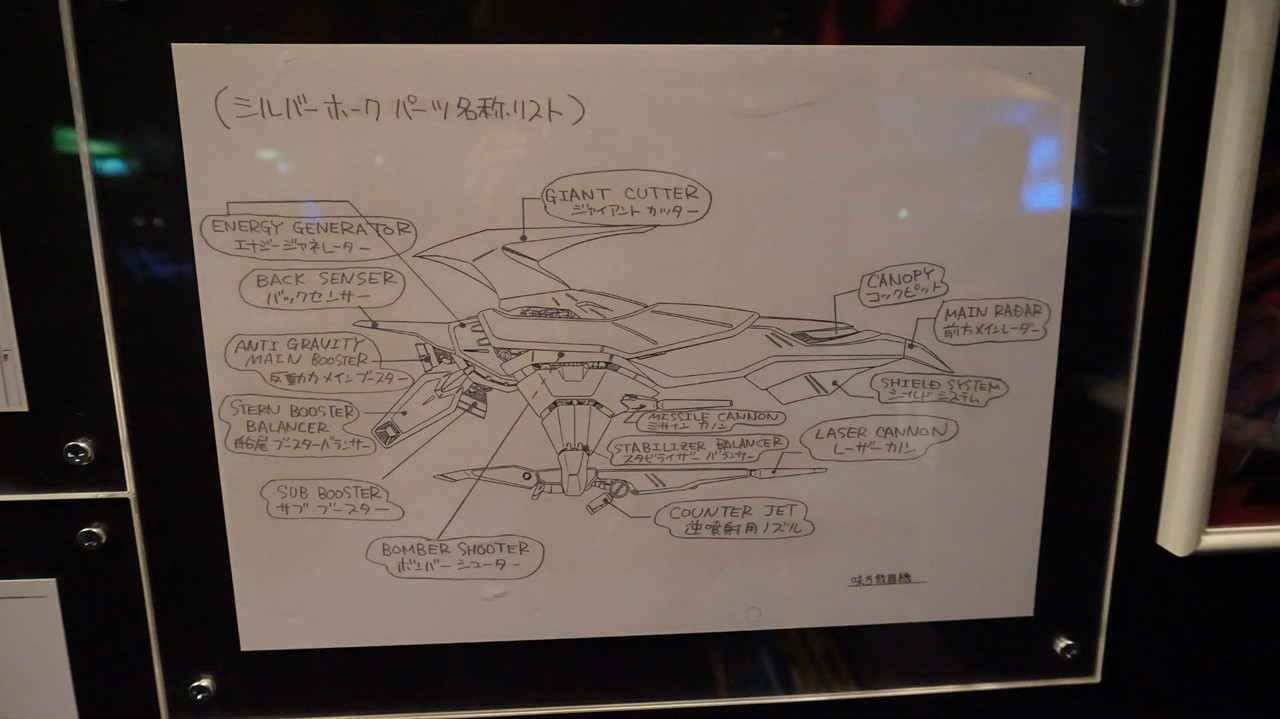 (シルバーホーク パーツ名称リスト)
GIANT CUTTER
ジャイアント カッター
ENERGY GENERATOR
エナジージェネレーター
BACK SENSER
バックセンサー
CANOPY
コックピット
MAIN RADAR
前方メインレーダー
ANTI GRAVITY
MAIN BOOSTER
反重力メインブースター
SHIELD SYSTEM
シールド システム
STERN BOOSTER
BALANCER
船尾 ブースターバランサー
MISSILE CANNON
ミサイル カノン
STABILIZER BALANCER
スタビライザー バランサー
LASER CANNON
レーザーカノン
SUB BOOSTER
サブ ブースター
COUNTER JET
逆噴射用ノズル
BOMBER SHOOTER
ボンバー シューター
味方戦闘機